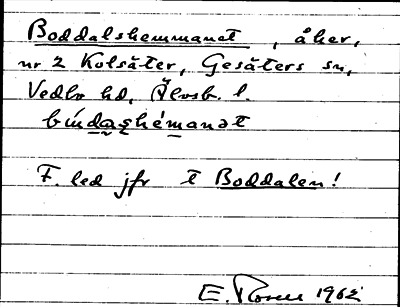 Boddalshemmanet, åker,
nr 2 Kolsäter, Gesäters sn,
Vedbo hd, Älvsb. l.
F. led jfr t Boddalen!
E. Rosell 1962